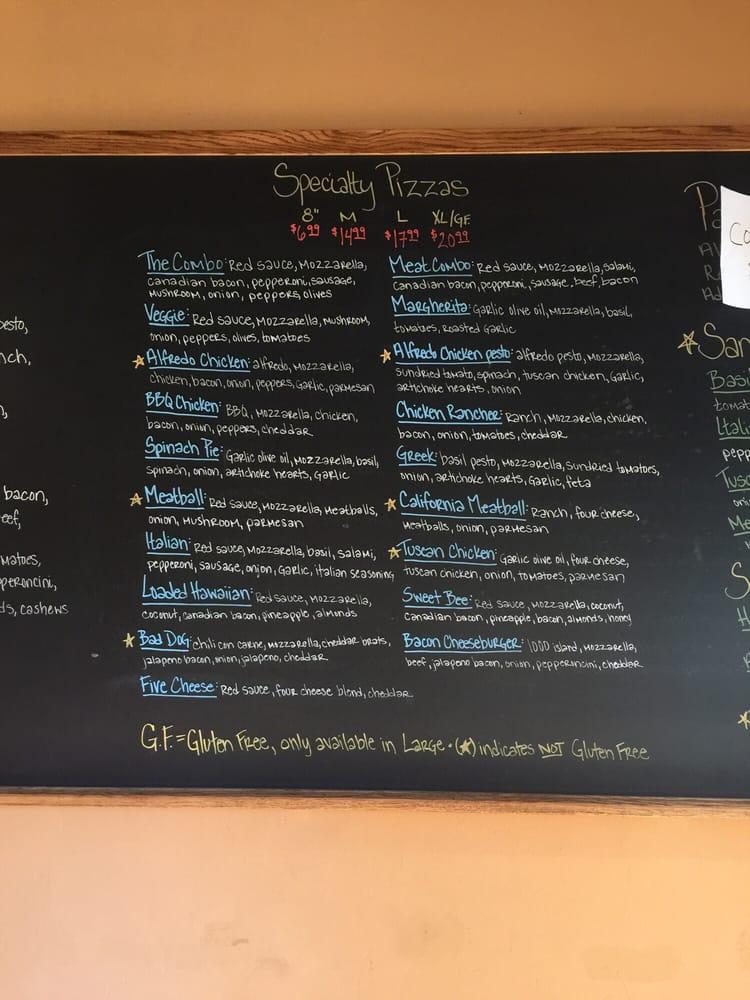 Specialty Pizzas
8" M L XL/GF
$6.99 $14.99 $17.99 $20.99
The Combo: Red sauce, Mozzarella,
canadian bacon, pepperoni, sausage,
mushroom, onion, peppers, olives
Veggie: Red sauce, Mozzarella, Mushroom,
onion, peppers, olives, tomatoes
☆ Alfredo Chicken: alfredo, Mozzarella,
chicken, bacon, onion, peppers, Garlic, parmesan
BBQ Chicken: BBQ, Mozzarella, chicken,
bacon, onion, peppers, cheddar
Spinach Pie: Garlic olive oil, Mozzarella, basil,
spinach, onion, artichoke hearts, Garlic
☆ Meatball: Red sauce, Mozzarella, Meatballs,
onion, Mushroom, parmesan
Italian: Red sauce, Mozzarella, basil, salami,
pepperoni, sausage, onion, garlic, italian seasoning
Loaded Hawaiian: Red sauce, Mozzarella,
coconut, canadian bacon, pineapple, almonds
☆ Bad Dog: chili con carne, mozzarella, cheddar brats,
jalapeno bacon, onion, jalapeno, cheddar
Five Cheese: Red sauce, four cheese blend, cheddar
Meat Combo: Red sauce, mozzarella, salami,
canadian bacon, pepperoni, sausage, beef, bacon
Margherita: Garlic olive oil, Mozzarella, basil,
tomatoes, Roasted Garlic
☆ Alfredo Chicken pesto: alfredo pesto, Mozzarella,
sundried tomato, spinach, tuscan chicken, Garlic,
artichoke hearts, onion
Chicken Rancher: Ranch, Mozzarella, chicken,
bacon, onion, tomatoes, cheddar
Greek: basil pesto, Mozzarella, sundried tomatoes,
artichoke hearts, garlic, feta
☆ California Meatball: Ranch, four cheese,
Meatballs, onion, parmesan
☆ Tuscan Chicken: Garlic olive oil, four cheese,
tuscan chicken, onion, tomatoes, parmesan
Sweet Bee: Red sauce, Mozzarella, coconut,
Canadian bacon, pineapple, bacon, almonds, honey
Bacon Cheeseburger: 1000 island, Mozzarella,
beef, jalapeno bacon, onion, pepperoncini, cheddar
G.F. = Gluten Free, only available in Large • (☆) indicates NOT Gluten Free
bacon,
ds, cashews